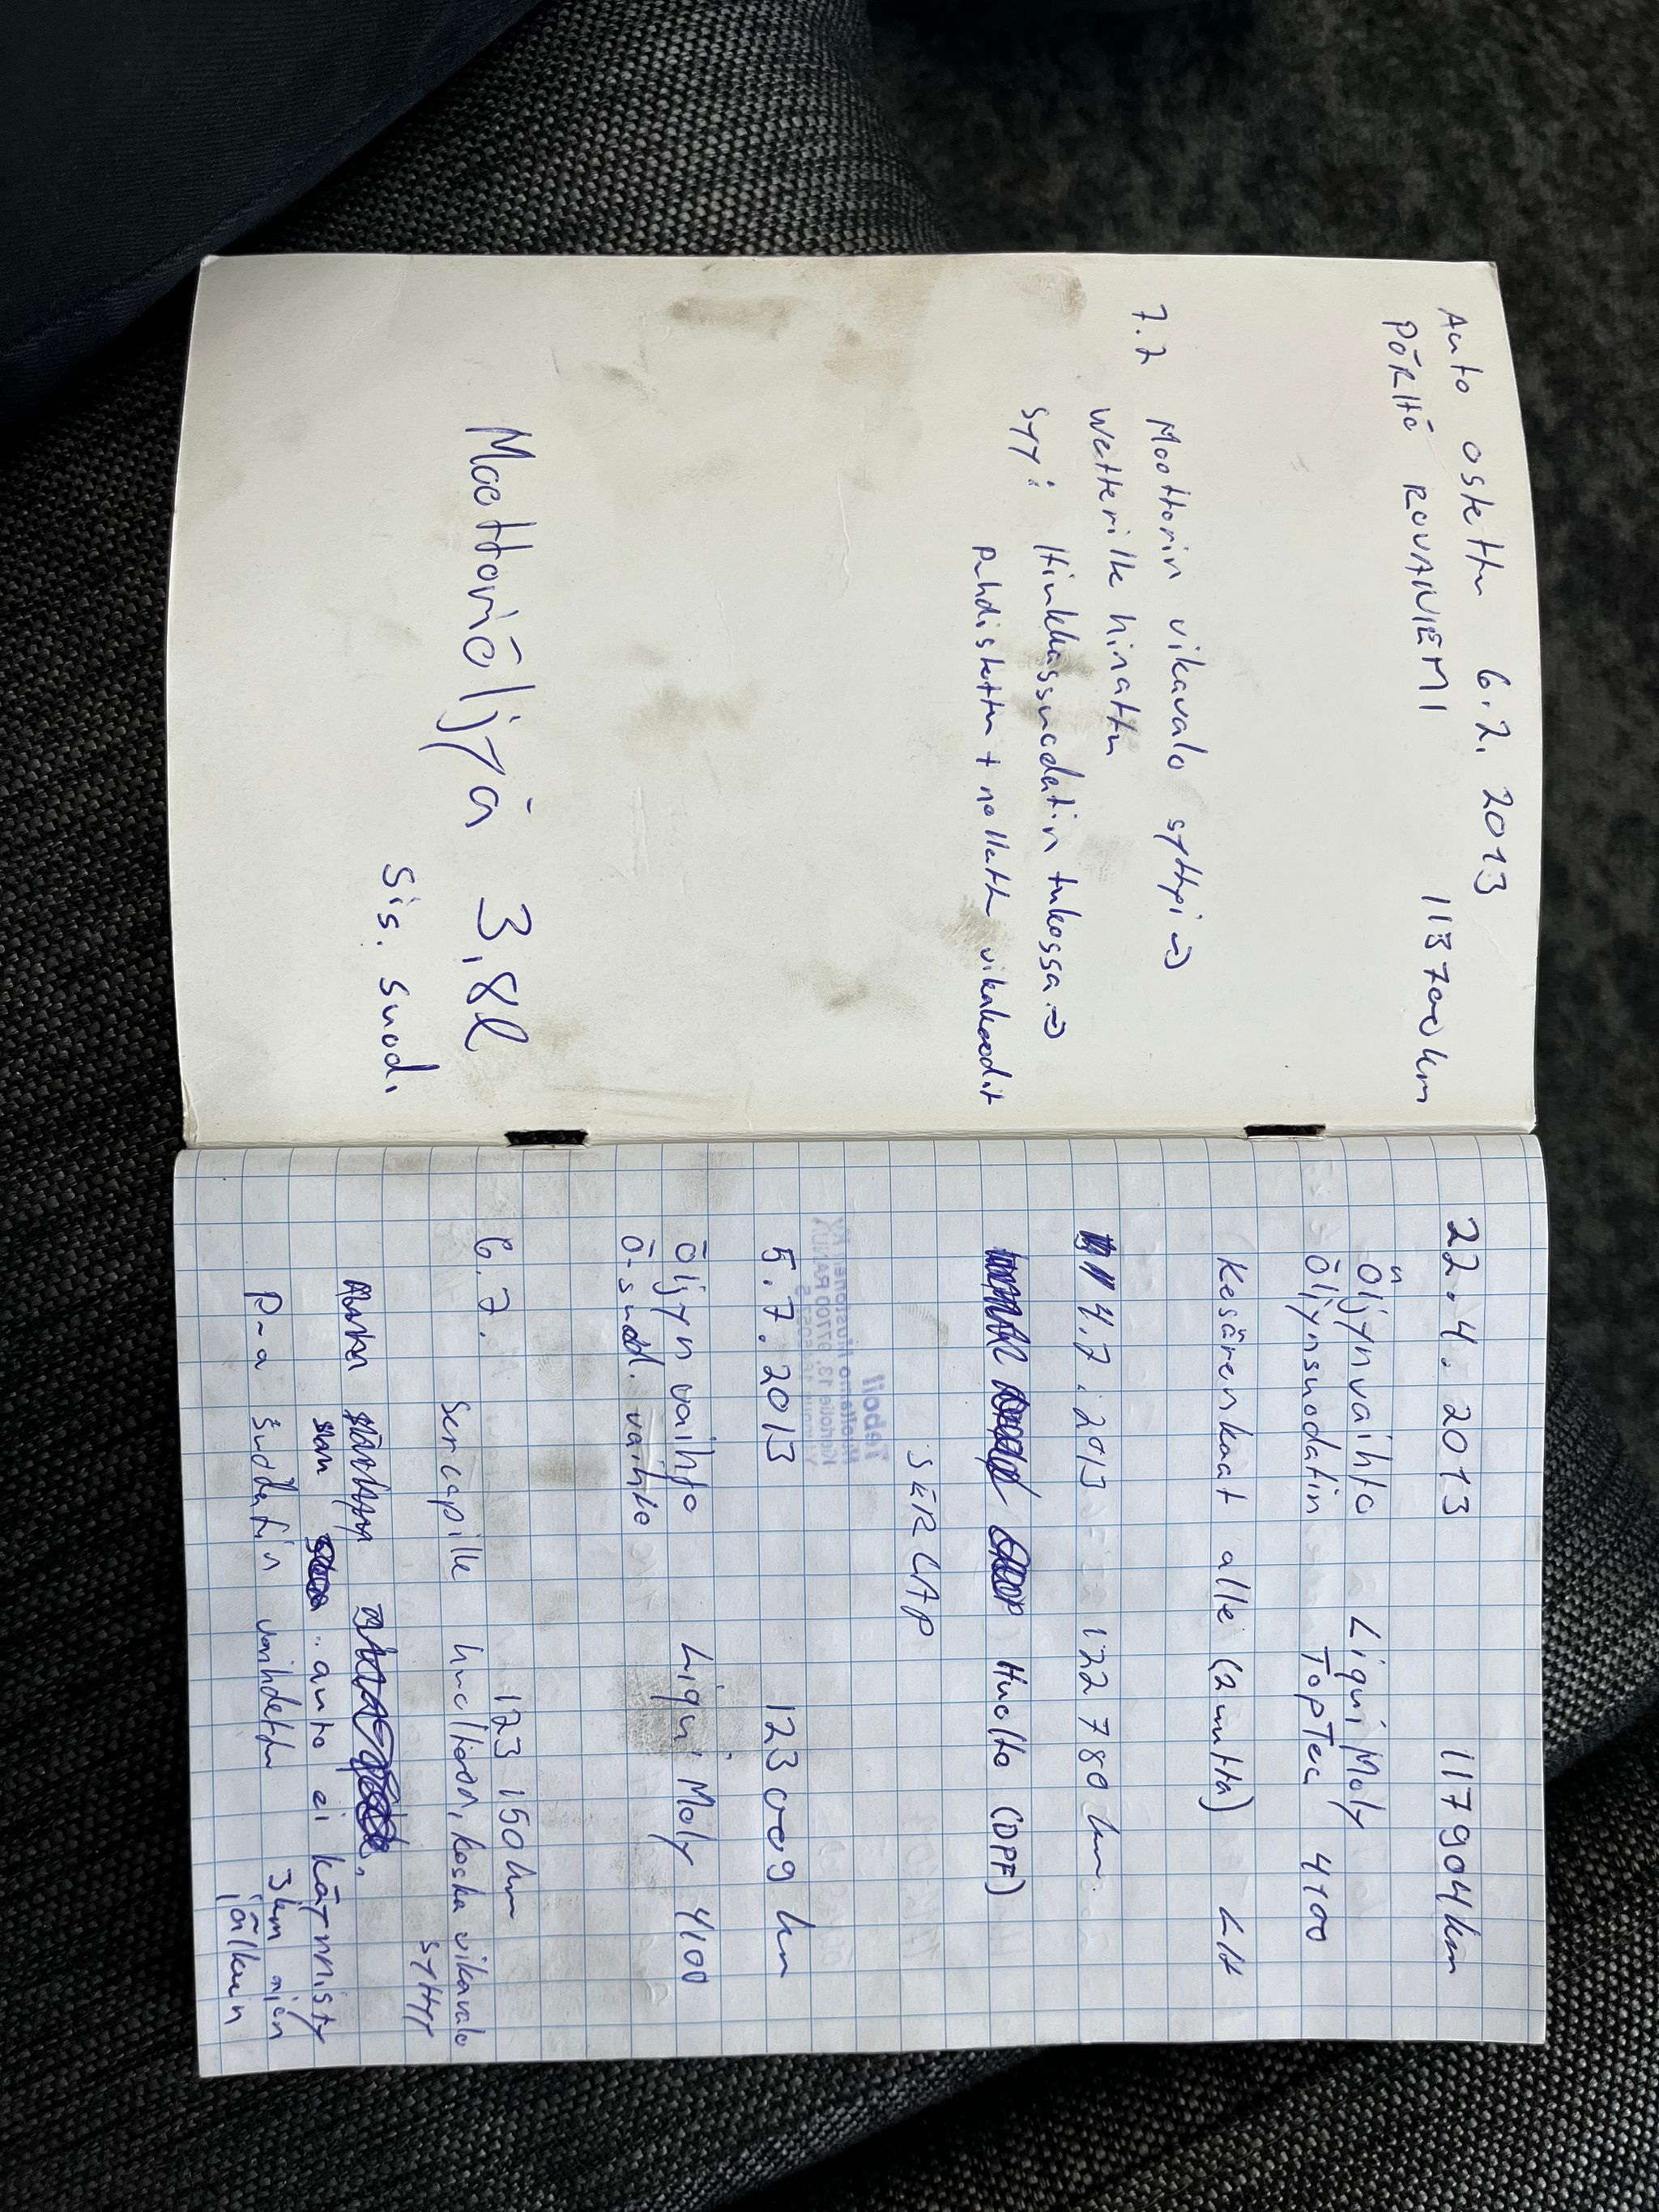 Auto ostettu 6.2.2013
PÖRHÖ ROVANIEMI 113700km
7.2 Moottorin vikavalo syttyi =>
Wetterille hinattu
syy: Hiukkassuodatin tukossa =>
puhdistettu + nollattu vikakoodit
Moottoriöljyä 3,8l
Sis. suod.
22.4.2013 117904km
Öljynvaihto Liqui Moly
Öljynsuodatin TopTec 4100
Kesärenkaat alle (2 uutta)
4.7.2013 122780 km.
Huolto (DPF)
SERCAP
5.7.2013 123009 km
Öljyn vaihto Liqui Moly 4100
Ö-suod. vaihto
6.7. 123150km
Sercapille huoltoon, koska vikavalo
syttyy
auto ei käynnisty
P-a suodatin vaihdettu 3km ajon
jälkeen